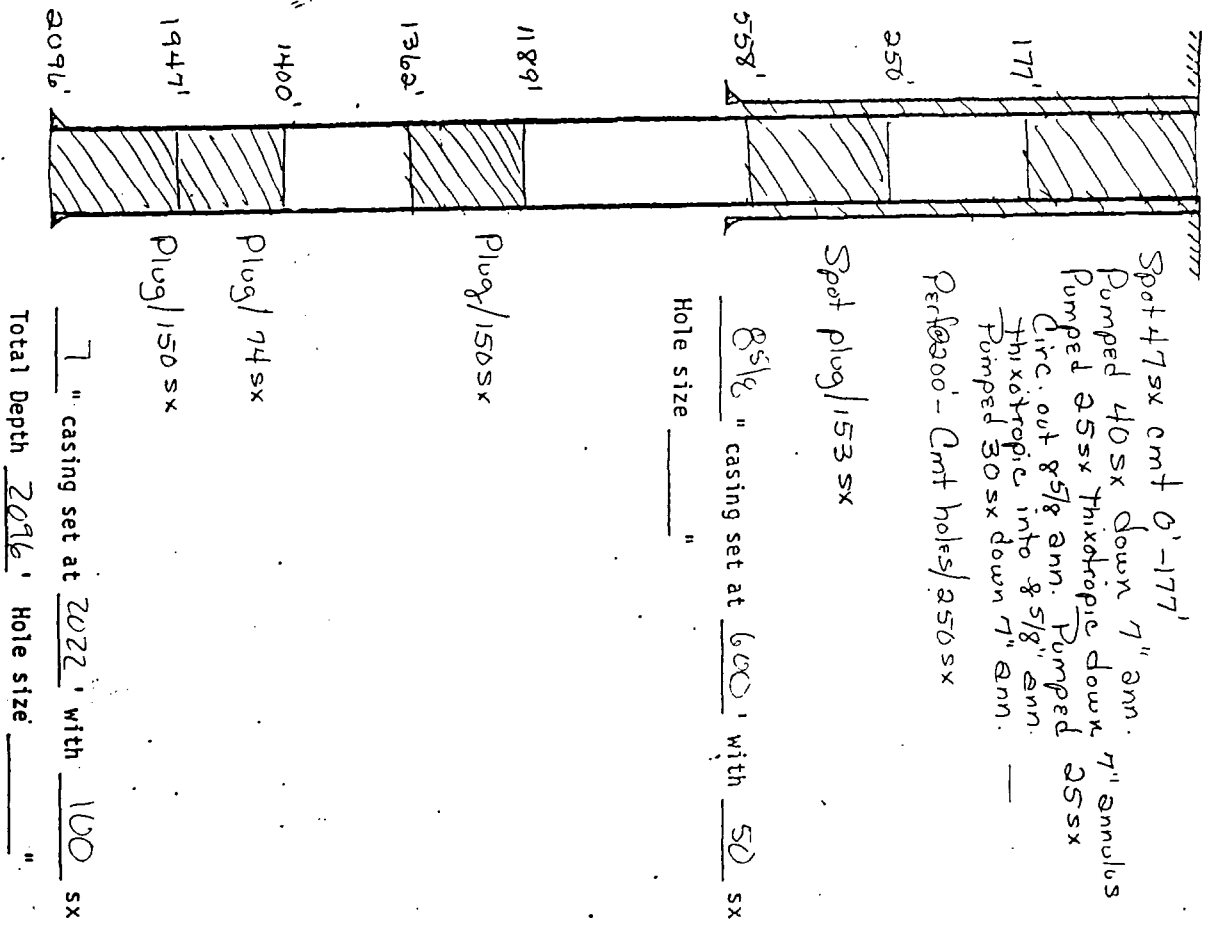 177'
250'
558'
1189'
1362'
1400'
1947'
2096'
Spot 47 sx cmt 0'-177'
Pumped 40 sx down 7" ann.
Pumped 25 sx Thixotropic down 7" annulus
Circ. out 8 5/8 ann. Pumped 25 sx
Thixotropic into 8 5/8" ann.
Pumped 30 sx down 7" ann.
Perf@200' - Cmt holes/250 sx
Spot plug/153 sx
8 5/8 " casing set at 600 ' with 50 sx
Hole size "
Plug/150 sx
Plug/ 74 sx
Plug/150 sx
7 " casing set at 2022 ' with 100 sx
Total Depth 2096 ' Hole size "